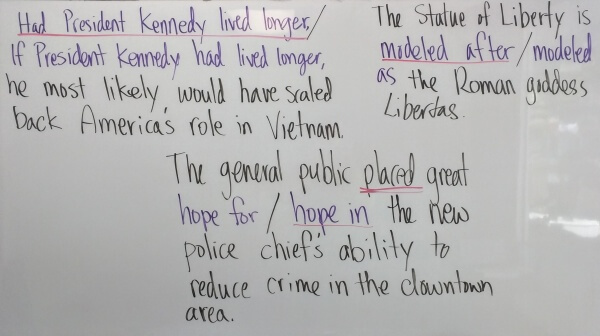 Had President Kennedy lived longer,/
If President Kennedy had lived longer,
he most likely would have scaled
back America's role in Vietnam.
The Statue of Liberty is
modeled after/modeled
as the Roman goddess
Libertas.
The general public placed great
hope for/hope in the new
police chief's ability to
reduce crime in the downtown
area.